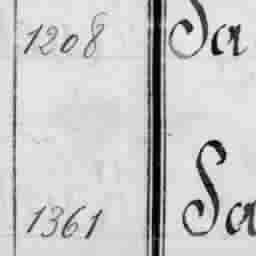 1208 Sa
1361 Sa